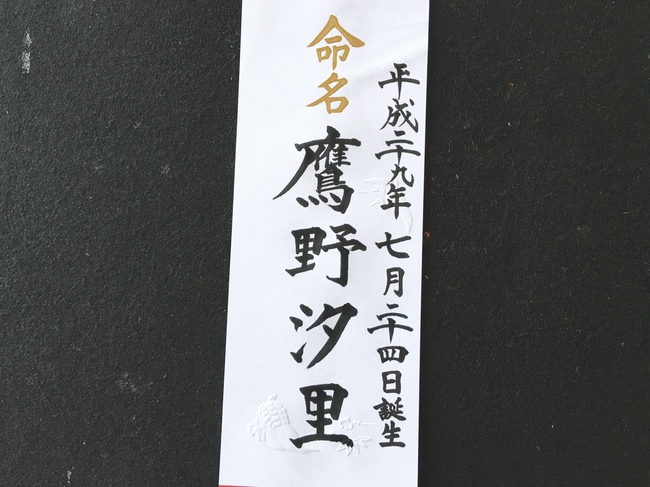 平成二十九年 七月二十四日誕生
命名 鷹野汐里